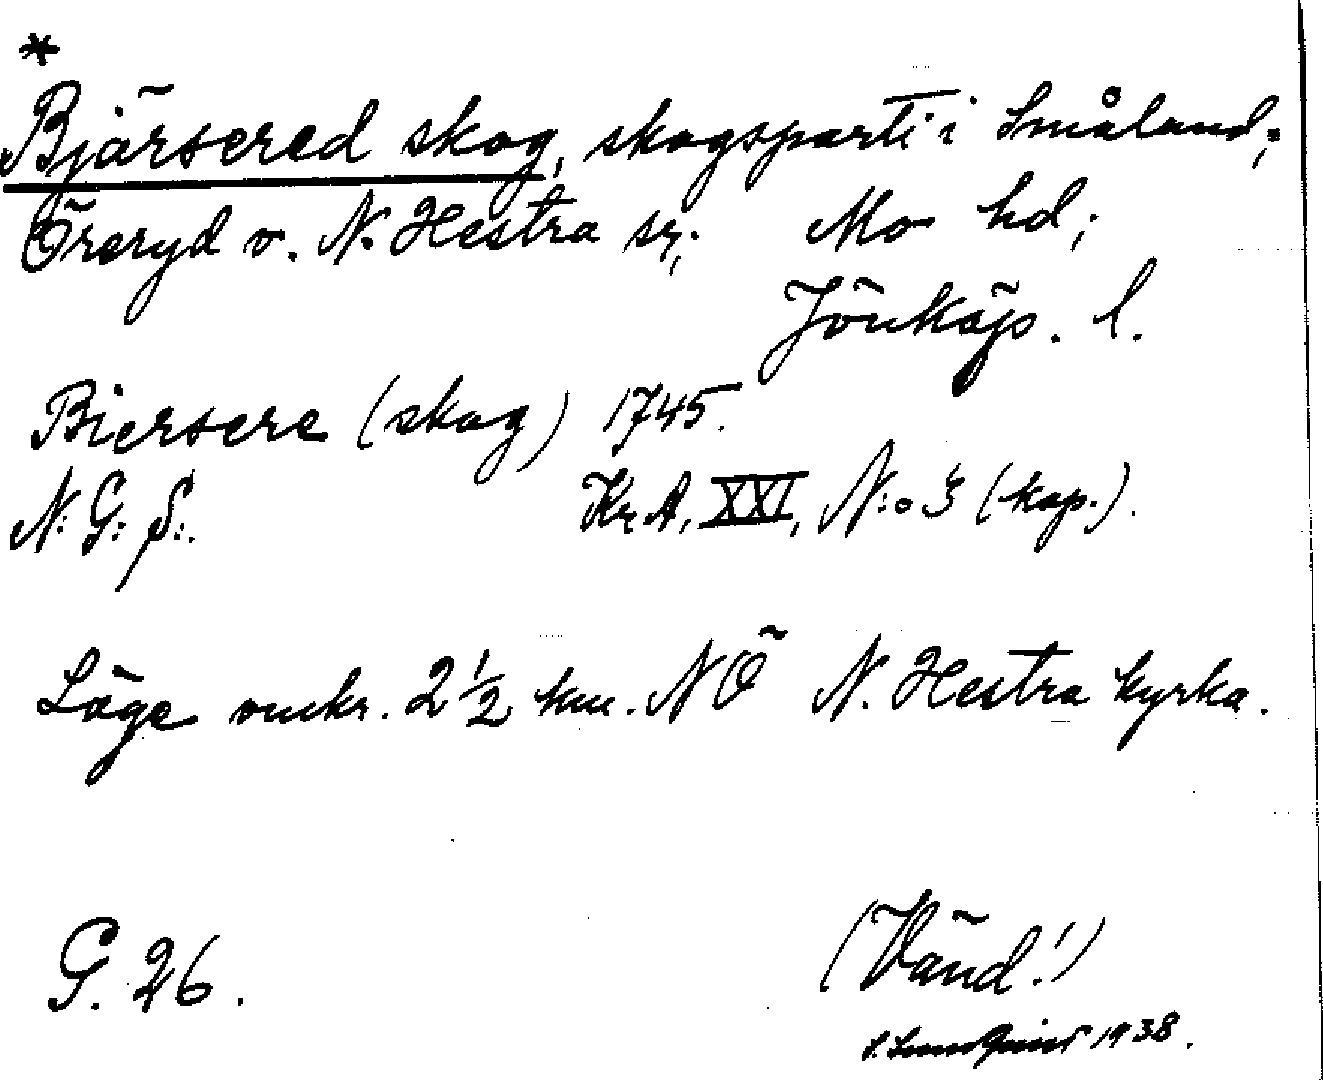 *
Bjärsered skog, skogsparti i Småland;
Öreryd o. N. Hestra sr; Mo hd;
Jönköp. l.
Biersere (skog) 1745.
N: G: S:. Kr. A, XXI, N:o 3 (kop.).
Läge omkr. 2 1/2 km. NÖ N. Hestra kyrka.
G. 26.
(Vänd!)
1938.